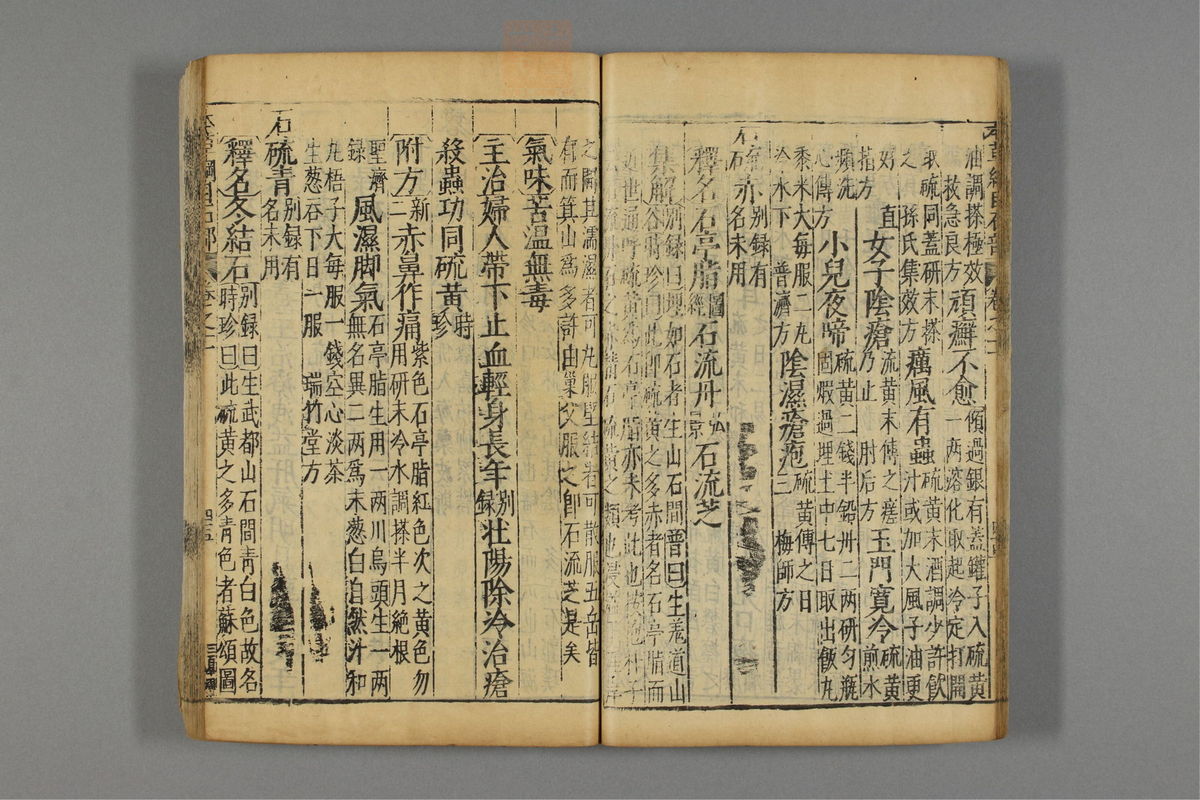 本草綱目石部 卷之十一 四十四
油調搽極效 頑癬不愈 傾過銀有蓋罐子入硫黃
救急良方 一兩溶化取起冷定打開
取硫同蓋研末搽 癘風有蟲 硫黃末酒調少許飲
之 孫氏集效方 汁或加大風子油更
好 直指方 女子陰瘡 硫黃末傅之瘥乃止 肘后方 玉門寬冷 硫黃煎水
頻洗 心傳方 小兒夜啼 硫黃二錢半鉛丹二兩研勻瓶固煅過埋土中七日取出飯丸
黍米大每服二丸冷水下 普濟方 陰濕瘡疱 硫黃傅之日三 梅師方
石硫赤 別錄有名未用
釋名石亭脂 圖經 石流丹 弘景 石流芝
集解 別錄曰理如石者生山石間普曰生羌道山
谷時珍曰此即硫黃之多赤者名石亭脂而
近世通呼硫黃為石亭脂亦未考此也按抱朴子
之
之濡濕者可丸服堅結者可散服五岳皆
有而箕山為多許由巢父服之即石流芝是矣
氣味苦溫無毒
主治婦人帶下止血輕身長年 別錄 壯陽除冷治瘡
殺蟲功同硫黃 時珍
附方 新二 赤鼻作痛 紫色石亭脂紅色次之黃色勿
用研末冷水調搽半月絕根
聖濟錄 風濕脚氣 石亭脂生用一兩川烏頭生一兩
無名異二兩為末葱白自然汁和
丸梧子大每服一錢空心淡茶
生葱吞下日一服 瑞竹堂方
石硫青 別錄有名未用
釋名冬結石 別錄曰生武都山石間青白色故名
時珍曰此硫黃之多青色者蘇頌圖
本草綱目石部 卷之十一 四十五